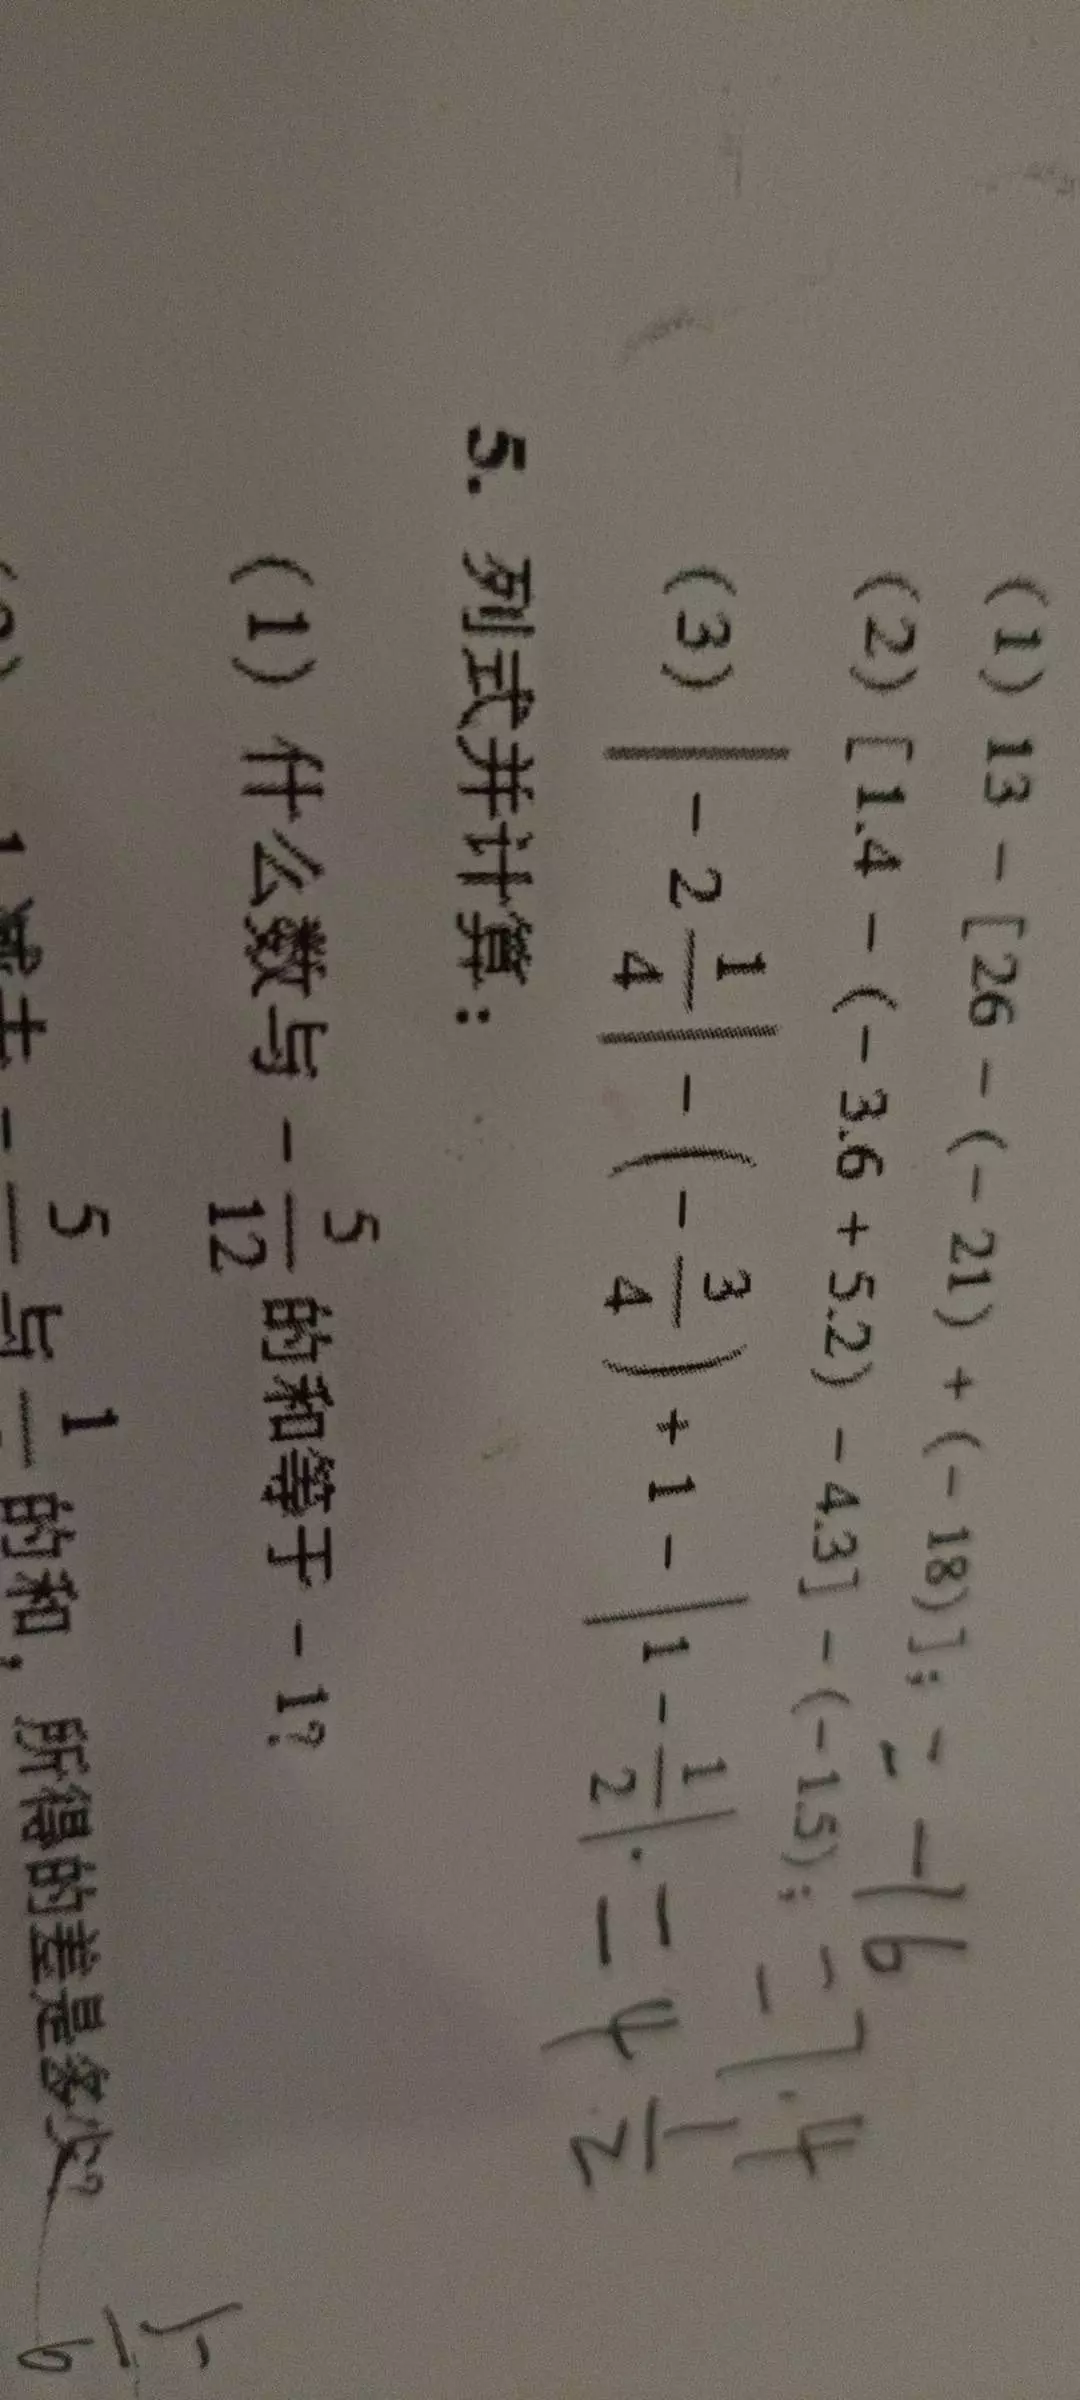 (1) 13 - [26 - (- 21) + (- 18)]; = -16
(2) [1.4 - (- 3.6 + 5.2) - 4.3] - (- 1.5); = 7.4
(3) |- 2 1/4| - (- 3/4) + 1 - |1 - 1/2|. = 4 1/2
5. 列式并计算:
(1) 什么数与 - 5/12 的和等于 - 1?
减去 - 5/ 与 1/ 的和, 所得的差是多少? 5/6